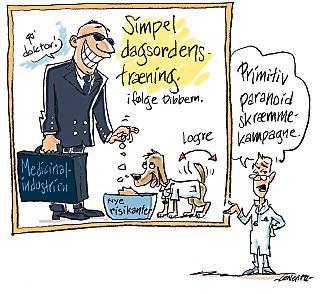 go'
doktor!
Simpel
dagsordens-
træning.
ifølge Dibbern.
logre
Medicinal-
industrien
Nye
risikanter
Primitiv
paranoid
skræmme-
kampagne.